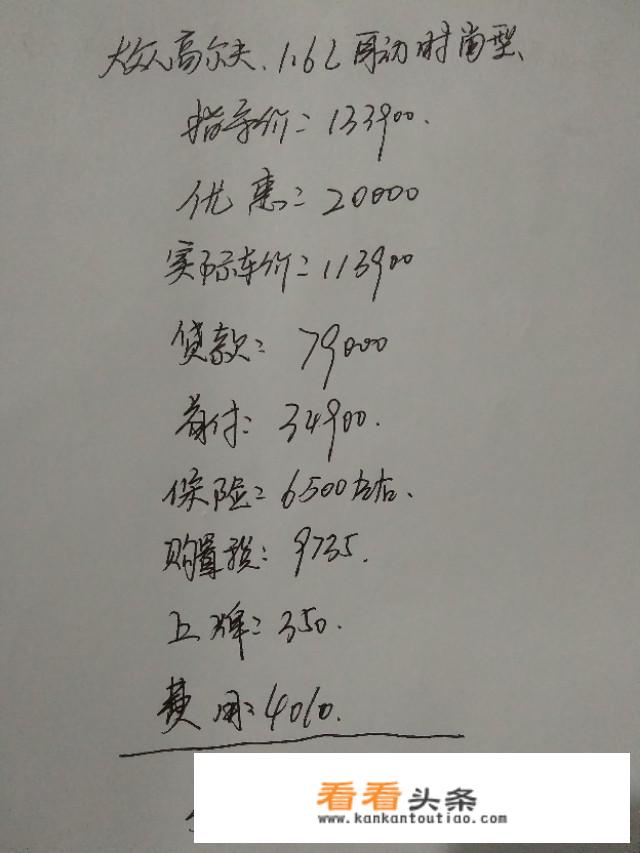 大众高尔夫、1.6L自动时尚型、
指导价:133900.
优惠:20000
实际车价:113900
贷款:79000
首付:34900.
保险:6500左右.
购置税:9735.
上牌:350.
费用:4010.
看看头条
www.kankantoutiao.com